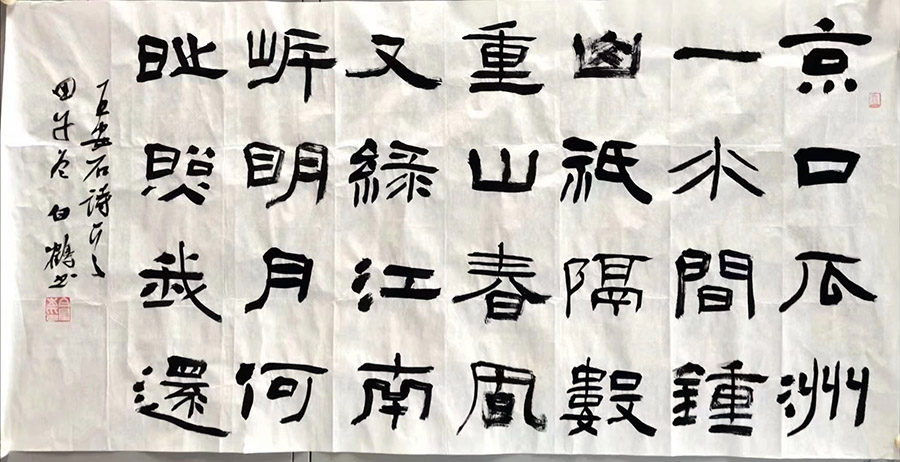 京口瓜洲
一水間鍾
山祇隔數
重山春風
又綠江南
岸明月何
時照我還
王安石詩
甲午冬白鶴書